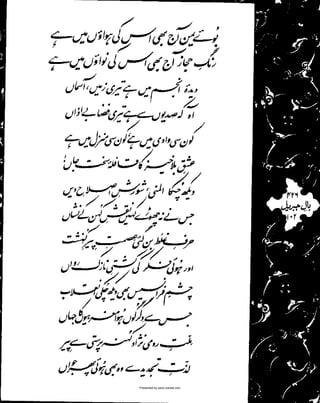 بوئے یمن آج بھی اس کی ہواؤں میں ہے
رنگِ حجاز آج بھی اس کی نواؤں میں ہے
دیدۂ انجم میں ہے تیری زمیں، آسماں
آہ کہ صدیوں سے ہے تیری فضا بے اذاں
کون سی وادی میں ہے کون سی منزل میں ہے
عشقِ بلاخیز کا قافلۂ سخت جاں!
دیکھ چکا المنی شورشِ اصلاحِ دیں
جس نے نہ چھوڑے کہیں نقشِ کہن کے نشاں
حرفِ غلط بن گئی عصمتِ پیرِ کنشت
اور ہوئی فکر کی کشتیِ نازک رواں
چشمِ فرانسیس بھی دیکھ چکی انقلاب
جس سے دگرگوں ہوا مغربیوں کا جہاں
ملتِ رومی نژاد کہنہ پرستی سے پیر
لذتِ تجدید سے وہ بھی ہوئی پھر جواں
۴۲۶
بالِ جبریل
۱۰۲